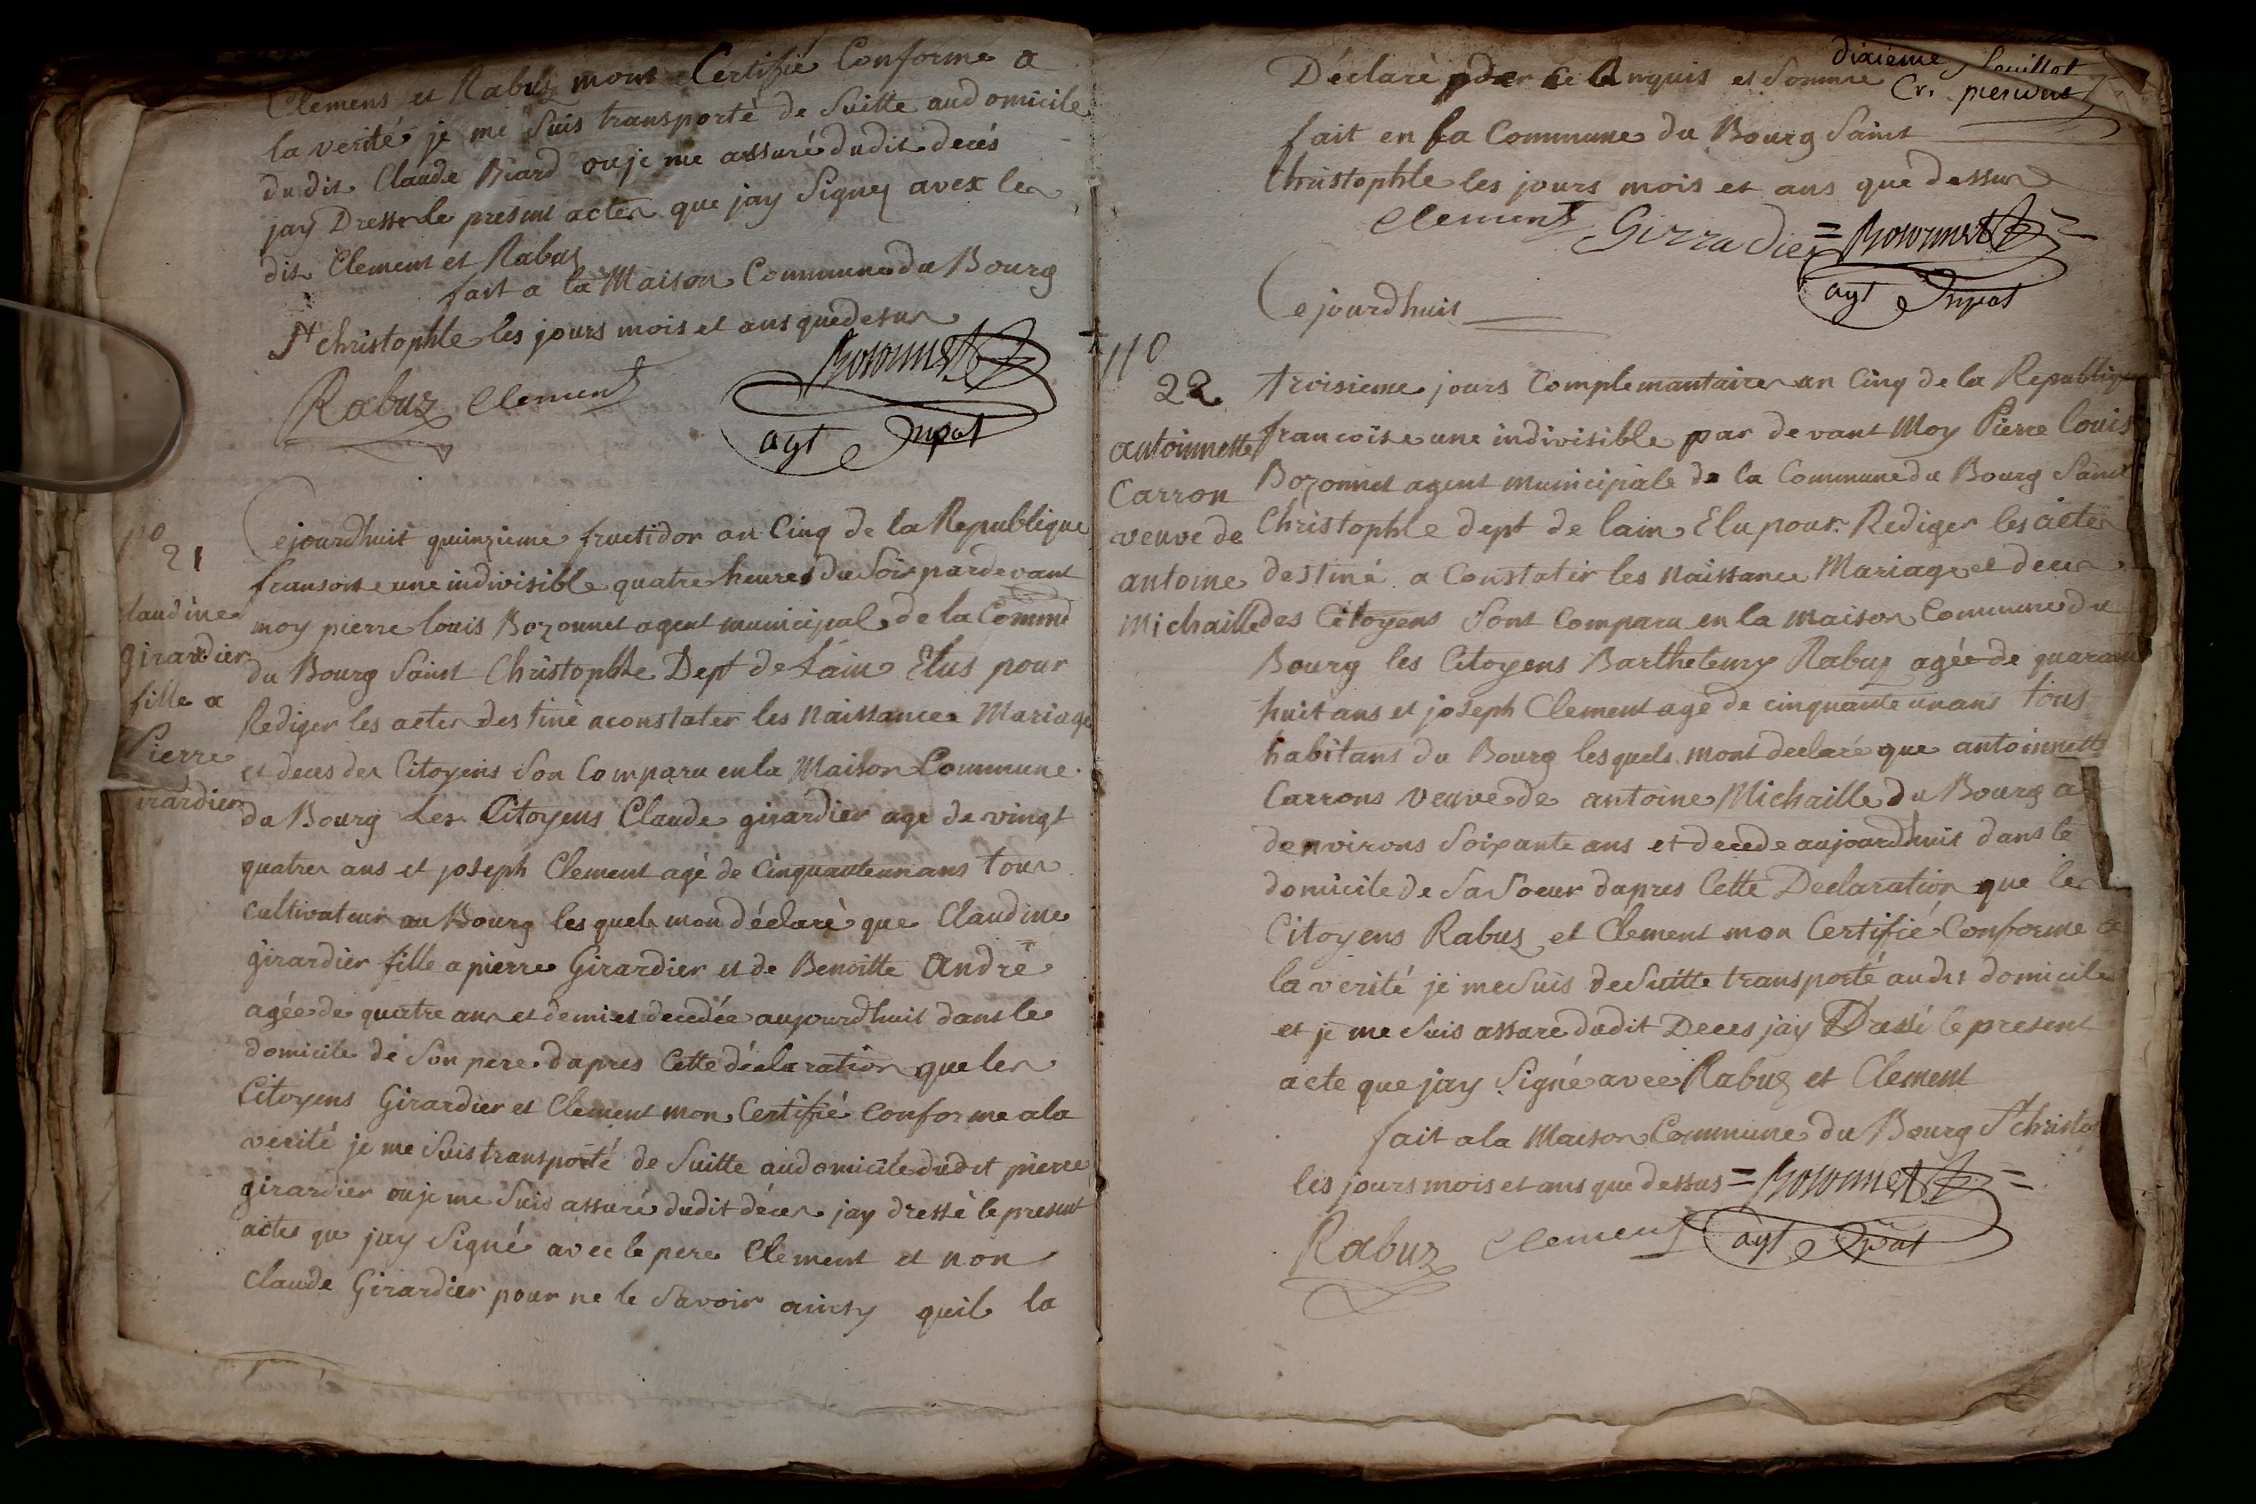 Clemens et Rabuz mont Certifié Conforme a
la verité je me suis transporté de Suitte audomicile
dudit Claude Biard ouje me assuré dudit decés
jay Dresse le present acte que jay Signé avex les
dit Clement et Rabuz
fait a la Maison Commune du Bourg
St christophle les jours mois et ans quedesus
Rabuz Clement Bozonnet
agt mpal
no
21
laudine
girardier
fille a
Pierre
irardier
Cejourdhuit quinzieme fructidor an Cinq de la Republique
fransoise une indivisible quatre heures du Soir pardevant
moy pierre louis Bozonnet agent municipal de la Comme
du Bourg Saint Christophle Dept de Lain Elus pour
Rediger les actes destiné aconstater les Naissances Mariage
et deces des Citoyens Son Comparu en la Maison Commune
du Bourg Les Citoyens Claude girardier age de vingt
quatres ans et joseph Clement agé de Cinquanteunans tous
Cultivateur au Bourg lesquels mon déclaré que Claudine
girardier fille a pierre Girardier et de Benoitte André
agée de quatre ans et demi et decedée aujourdhuit dans le
domicile de Son pere dapres Cette déclaration que les
Citoyens Girardier et Clement mon Certifié Conforme ala
verité je me Suis transporté de Suitte audomicile dudit pierre
girardier ouje me Suis assuré dudit déces jay dressé le present
actes que jay Signé avec le pere Clement et non
Claude Girardier pour ne le Savoir ainsy quil la
dixieme feuillet
Déclaré et Somme
fait en La Commune du Bourg Saint
Christophle les jours mois et ans que dessus
Clement Girradier = Bozonnet =
agt mpal
Cejourdhuis
no
22
antoinnette
Carron
veuve de
antoine
Michaille
troisieme jours Complemantaires an Cinq de la Republique
francoise une indivisible par devant Moy Pierre Louis
Bozonnet agent municipale de la Commune du Bourg Saint
Christophle dept de lain Elu pour Rediger les actes
destiné a Constater les Naissance Mariage et deces
des Citoyens Sont Comparu en la Maison Commune du
Bourg les Citoyens Barthelemy Rabuz agée de quarante
huit ans et joseph Clement agé de cinquante unans tous
habitans du Bourg lesquels mont declaré que antoinnette
Carrons veuve de antoine Michaille du Bourg a
denvirons Soixante ans et decede aujourdhuit dans le
domicile de Sa Soeur dapres Cette Declaration que les
Citoyens Rabuz et Clement mon Certifié Conforme a
la verité je me Suis de Suitte transporté audit domicile
et je me Suis assure dudit Deces jay Dressé le present
acte que jay Signé avec Rabuz et Clement
fait a la Maison Commune du Bourg St Christo
les jours mois et ans que dessus = Bozonnet =
Rabuz Clement agt mpal